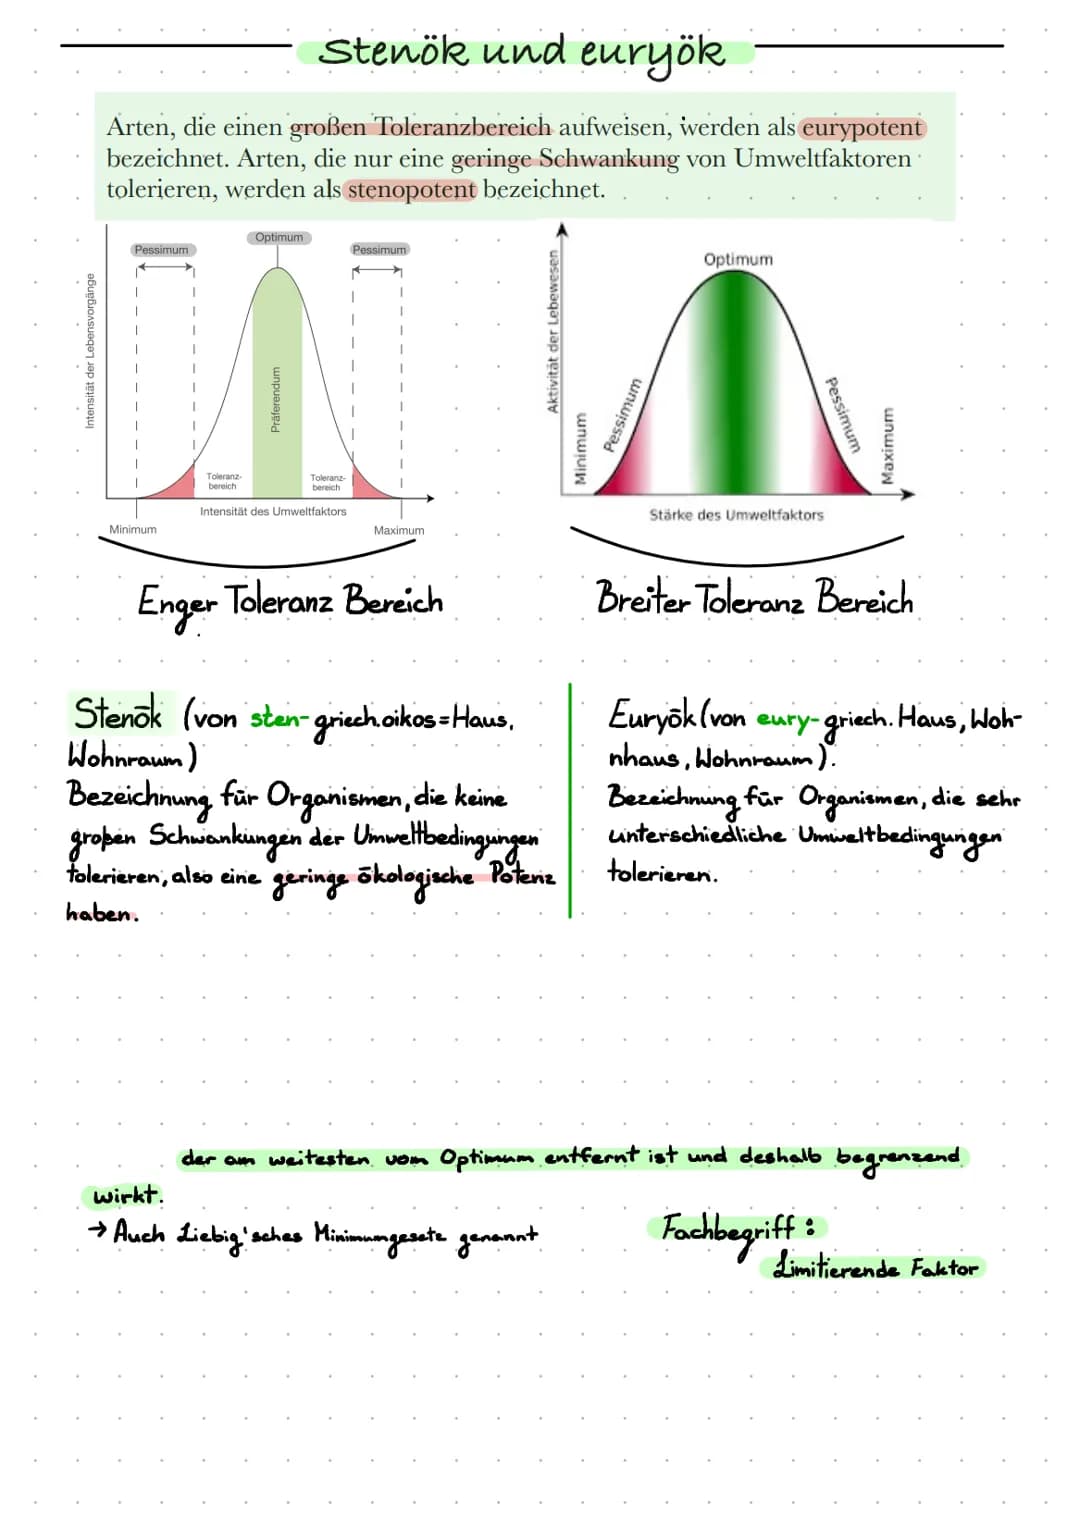 Stenök und euryök
Arten, die einen großen Toleranzbereich aufweisen, werden als eurypotent
bezeichnet. Arten, die nur eine geringe Schwankung von Umweltfaktoren
tolerieren, werden als stenopotent bezeichnet.
Optimum
Pessimum
Pessimum
Intensität der Lebensvorgänge
Präferendum
Toleranz-
bereich
Toleranz-
bereich
Intensität des Umweltfaktors
Minimum
Maximum
Optimum
Aktivität der Lebewesen
Minimum
Pessimum
Pessimum
Maximum
Stärke des Umweltfaktors
Enger Toleranz Bereich
Breiter Toleranz Bereich
Stenök (von sten- griech.oikos=Haus,
Wohnraum)
Bezeichnung für Organismen, die keine
großen Schwankungen der Umweltbedingungen
tolerieren, also eine geringe ökologische Potenz
haben.
Euryök (von eury- griech. Haus, Woh-
nhaus, Wohnraum).
Bezeichnung für Organismen, die sehr
unterschiedliche Umweltbedingungen
tolerieren.
der am weitesten vom Optimum entfernt ist und deshalb begrenzend
wirkt.
→ Auch Liebig'sches Minimumgesetz genannt
Fachbegriff:
Limitierende Faktor